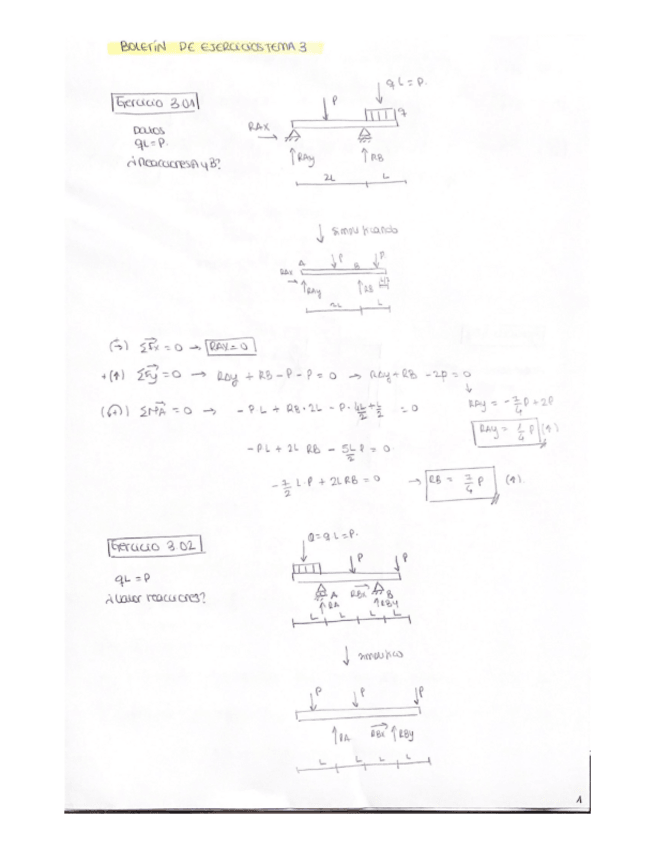 BOLETÍN DE EJERCICIOS TEMA 3
Ejercicio 3.01
Datos
qL = P.
¿Reacciones A y B?
qL = P.
P
q
RAX
RAy
RB
2L
L
simplificando
A
P
B
P
RAX
RAy
RB
2L
L
(→) ΣFx = 0 → RAX = 0
+(↑) ΣFy = 0 → RAy + RB - P - P = 0 → RAy + RB - 2P = 0
RAy = -7/4 P + 2P
ΣMA = 0 → - P L + RB · 2L - P · 4L/2 + L/2 = 0
RAy = 1/4 P (↑)
- P L + 2L RB - 5L/2 P = 0
- 7/2 L · P + 2L RB = 0 → RB = 7/4 P (↑).
Ejercicio 3.02
qL = P
¿Valor reacciones?
Q = qL = P.
P
P
A
RBx
B
RA
RBy
L L L L
simplifico
P P P
RA RBx RBy
L L L L
1